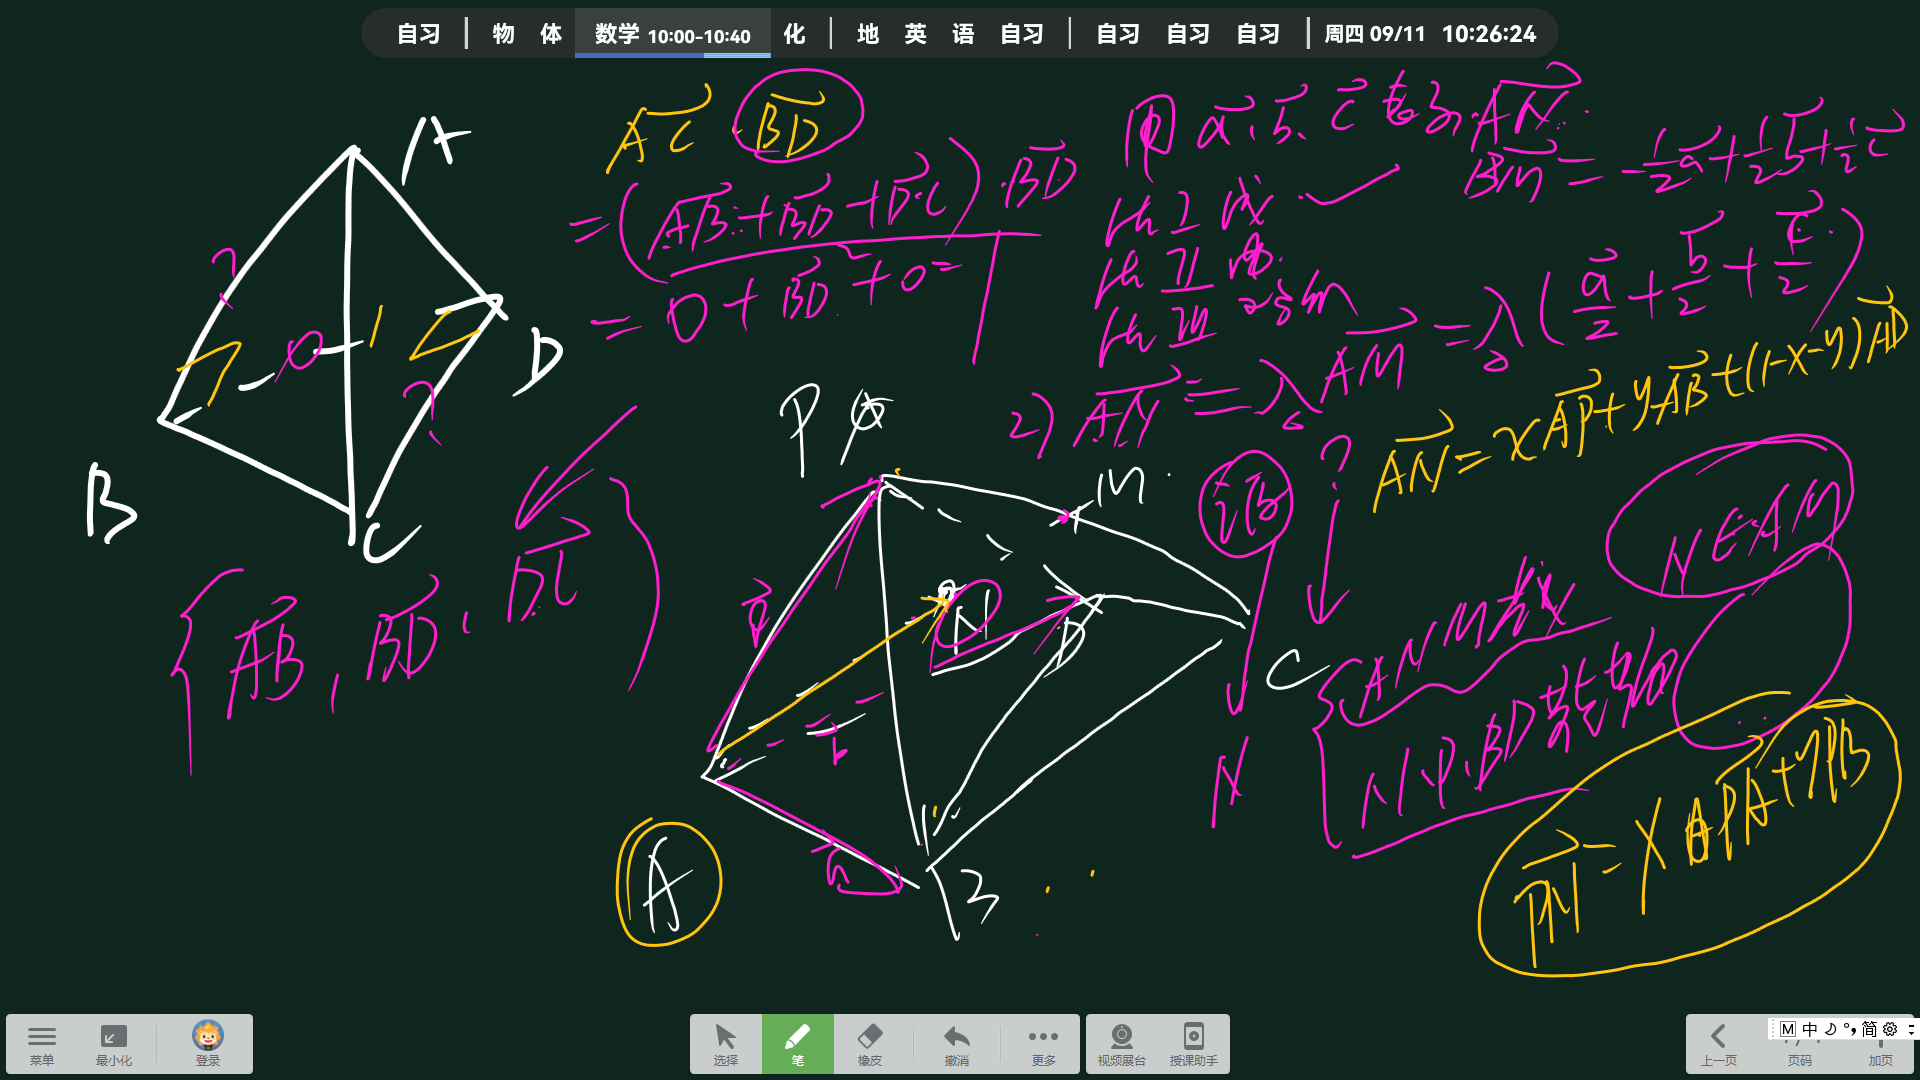 自习 | 物 体 数学 10:00-10:40 化 | 地 英 语 自习 | 自习 自习 自习 | 周四 09/11 10:26:24
A
B
C
D
AC·BD
=(AB+BD+DC)·BD
=0+BD²+0=
AB, BD, DC
用 a、b、c 表示 AN
BM=-1/2a+1/2b+1/2c
2) AN=λAM=λ(a/2+b/2+c/2)
AN=xAP+yAB+(1-x-y)AD
P
M
N
D
C
A
B
b
a
N∈AM
A N M 共线
N、P、BD 共面
N
PN=xPA+yPB
菜单
最小化
登录
选择
笔
橡皮
撤消
更多
视频展台
授课助手
上一页
页码
加页
M 中 简